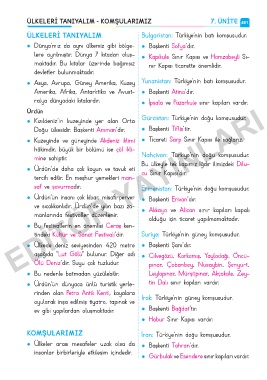 ÜLKELERİ TANIYALIM - KOMŞULARIMIZ
7. ÜNİTE
ÜLKELERİ TANIYALIM
Dünyamız da aynı ülkemiz gibi bölge-
lere ayrılmıştır. Dünya 7 kıtadan oluş-
maktadır. Bu kıtalar üzerinde bağımsız
devletler bulunmaktadır.
Asya, Avrupa, Güney Amerika, Kuzey
Amerika, Afrika, Antarktika ve Avust-
ralya dünyadaki kıtalardır.
Ürdün
Akdeniz'in kuzeyinde yer alan Orta
Doğu ülkesidir. Başkenti Amman'dır.
Kuzeyinde ve güneyinde Akdeniz iklimi
hâkimdir, büyük bir bölümü ise çöl ikli-
mine sahiptir.
Ürdün'de daha çok koyun ve tavuk eti
tercih edilir. En meşhur yemekleri man-
saf ve şavurmadır.
Ürdün'ün insanı çok kibar, misafirperver
ve sıcakkanlıdır. Ürdün'de yılın bazı za-
manlarında festivaller düzenlenir.
Bu festivallerin en önemlisi Ceraş ken-
tindeki Kültür ve Sanat Festivali'dir.
Ülkede deniz seviyesinden 420 metre
aşağıda "Lut Gölü" bulunur. Diğer adı
Ölü Deniz'dir. Suyu çok tuzludur.
Bu nedenle batmadan yüzülebilir.
Ürdün'ün dünyaca ünlü turistik yerle-
rinden olan Petra Antik Kenti, kayalara
oyularak inşa edilmiş tiyatro, tapınak ve
ev gibi yapılardan oluşmaktadır.
KOMŞULARIMIZ
Ülkeler arası mesafeler uzak olsa da
insanlar birbirleriyle etkileşim içindedir.
Bulgaristan: Türkiye'nin batı komşusudur.
Başkenti Sofya'dır.
Kapıkule Sınır Kapısı ve Hamzabeyli Sı-
nır Kapısı ticarette önemlidir.
Yunanistan: Türkiye'nin batı komşusudur.
Başkenti Atina'dır.
İpsala ve Pazarkule sınır kapıları vardır.
Gürcistan: Türkiye'nin doğu komşusudur.
Başkenti Tiflis'tir.
Ticareti Sarp Sınır Kapısı ile sağlarız.
Nahcivan: Türkiye'nin doğu komşusudur.
Bu ülkeyle tek kapımız Iğdır ilimizdeki Dilu-
cu Sınır Kapısı'dır.
Ermenistan: Türkiye'nin doğu komşusudur.
Başkenti Erivan'dır.
Alakapı ve Akkaya sınır kapıları kapalı
olduğu için ticaret yapılamamaktadır.
Suriye: Türkiye'nin güney komşusudur.
Başkenti Şam'dır.
Cilvegözü, Karkamış, Yayladağı, Öncü-
pınar, Çobanbey, Nusaybin, Şenyurt,
Ceylanpınar, Mürşitpınar, Akçakale, Zey-
tin Dalı sınır kapıları vardır.
Irak: Türkiye'nin güney komşusudur.
Başkenti Bağdat'tır.
Habur Sınır Kapısı vardır.
İran: Türkiye'nin doğu komşusudur.
Başkenti Tahran'dır.
Gürbulak ve Esendere sınır kapıları vardır.